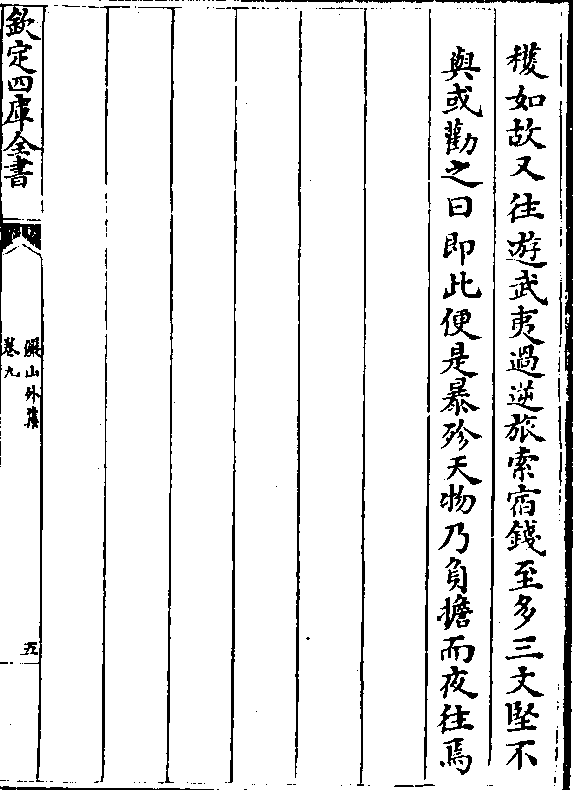 穫如故又往游武夷過逆旅索宿錢至多三文堅不
與或勸之曰即此便是暴殄天物乃負擔而夜往焉
欽定四庫全書
儼山外集
卷九
五